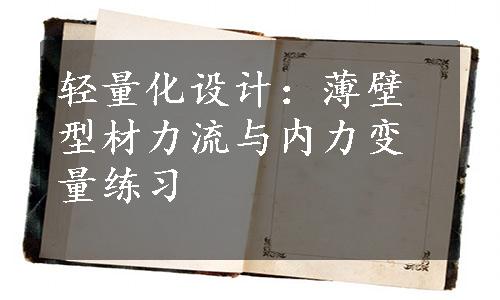 轻量化设计：薄壁
型材力流与内力变
量练习